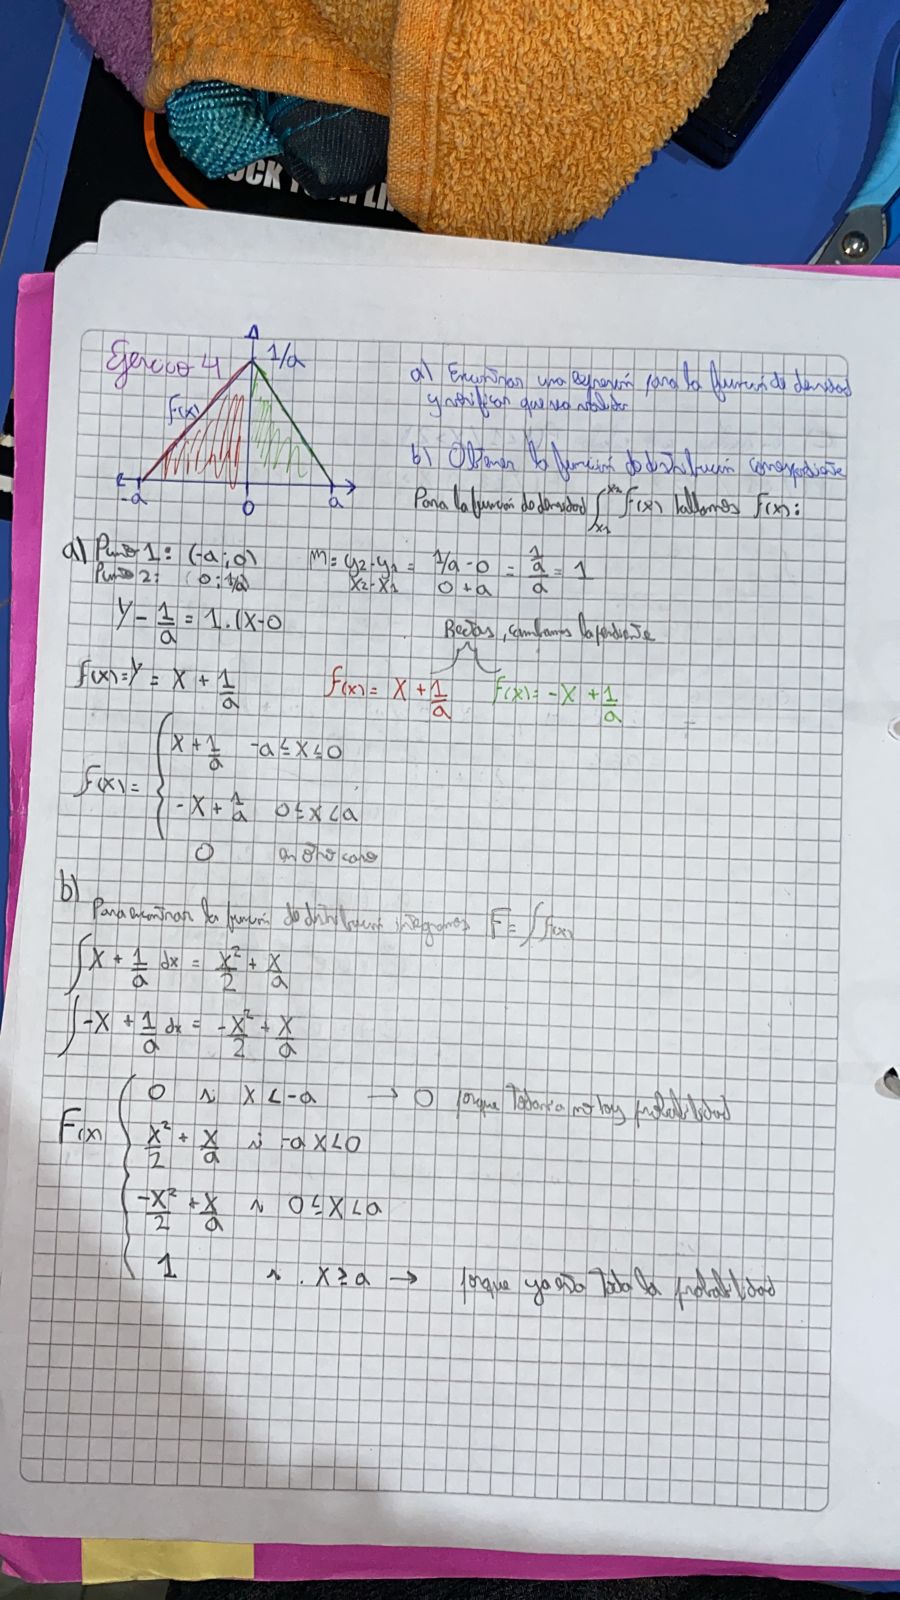 OCK YOUR LI
Ejercicio 4
1/a
F(x)
-a
0
a
a) Encontrar una expresión para la función de densidad
y verificar que sea válida
b) Obtener la función de distribución correspondiente
Para la función de densidad ∫ₓ₁ˣ² f(x) hallamos f(x):
a) Punto 1: (-a;0)
Punto 2: (0;1/a)
M = y2-y1/x2-x1 = 1/a-0/0+a = 1/a/a = 1
y - 1/a = 1.(x-0
Rectas, cambiamos la pendiente
f(x)=y = x + 1/a
f(x) = x + 1/a
f(x) = -x + 1/a
f(x) = { x + 1/a -a ≤ x ≤ 0
-x + 1/a 0 ≤ x < a
0 en otro caso
b)
Para encontrar la función de distribución integramos F = ∫ f(x)
∫ x + 1/a dx = x²/2 + x/a
∫ -x + 1/a dx = -x²/2 + x/a
F(x) { 0 si x < -a → 0 porque todavía no hay probabilidad
x²/2 + x/a si -a x < 0
-x²/2 + x/a si 0 ≤ x < a
1 si . x ≥ a → porque ya está toda la probabilidad